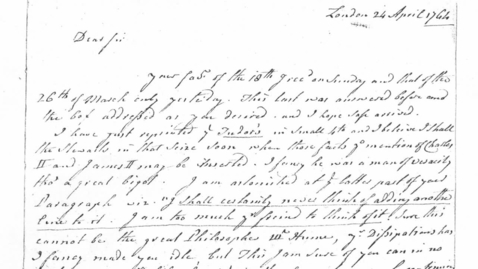 London 24 April 1764
Dear Sir
your fav.r of the 18th I rec'd on Sunday and that of the
26th of March only yesterday. This last was answered before and
the box addressed as you desired. and I hope safe arrived.
I have just reprinted y.e Tudors in Small 4to and I believe I shall
the Stewarts in that Seize Soon when those facts y.u mention of Charles
II and James II may be inserted. I fancy he was a man of veracity
tho' a great bigot. I am astonished at y.e latter part of your
Paragraph viz. ng Shall certainly never think of adding another
Line to it. I am too much y.r friend to think of it. Sure this
cannot be the great Philosopher M.r Hume, y.r Dissipations has
I fancy made you idle but This I am Sure of you can in no